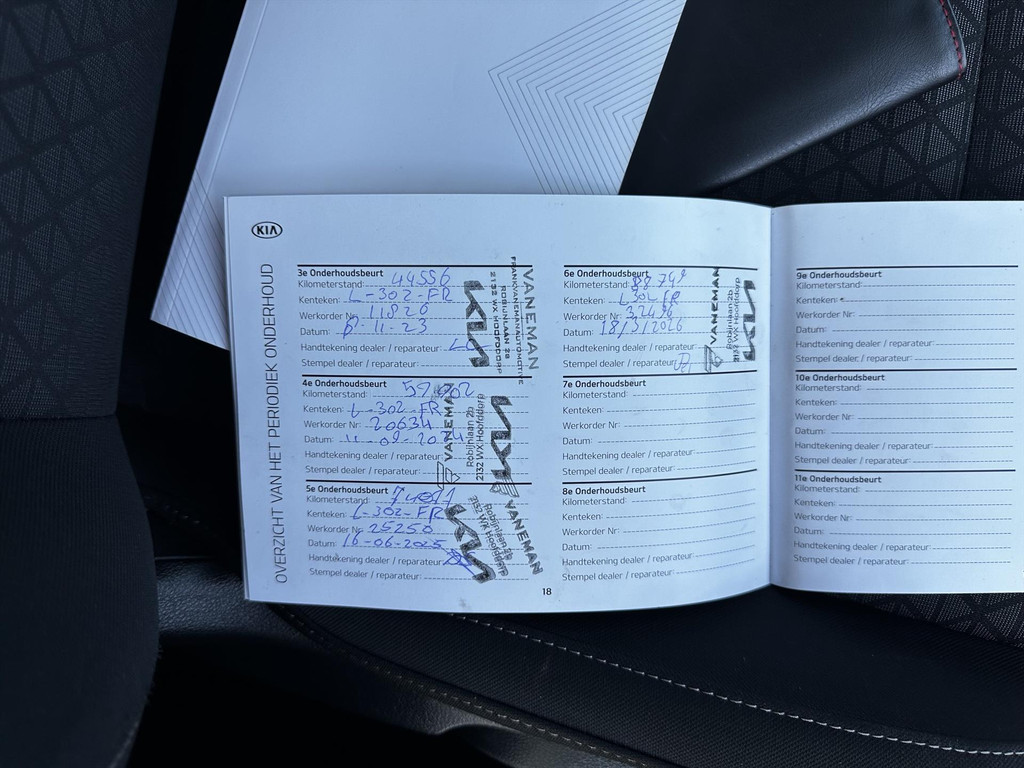 KIA
OVERZICHT VAN HET PERIODIEK ONDERHOUD
3e Onderhoudsbeurt
Kilometerstand: 44556
Kenteken: L-302-FR
Werkorder Nr: 11826
Datum: -11-23
Handtekening dealer / reparateur:
Stempel dealer / reparateur:
VANEMAN
FRANKVANEMANAUTOMOTIVE
ROBIJNLAAN 2B
2132 WX HOOFDDORP
KIA
4e Onderhoudsbeurt
Kilometerstand:
Kenteken: L-302-FR
Werkorder Nr: 20634
Datum:
Handtekening dealer / reparateur:
Stempel dealer / reparateur:
VANEMAN
Robijnlaan 2b
2132 WX Hoofddorp
KIA
5e Onderhoudsbeurt
Kilometerstand:
Kenteken: L-302-FR
Werkorder Nr: 25250
Datum: 16-06-2025
Handtekening dealer / reparateur:
Stempel dealer / reparateur:
KIA
2132 WX Hoofddorp
Robijnlaan 2b
VANEMAN
18
6e Onderhoudsbeurt
Kilometerstand:
Kenteken: L302FR
Werkorder Nr: 32496
Datum: 18/3/2026
Handtekening dealer / reparateur:
Stempel dealer / reparateur:
VANEMAN
Robijnlaan 2b
2132 WX Hoofddorp
KIA
7e Onderhoudsbeurt
Kilometerstand:
Kenteken:
Werkorder Nr:
Datum:
Handtekening dealer / reparateur:
Stempel dealer / reparateur:
8e Onderhoudsbeurt
Kilometerstand:
Kenteken:
Werkorder Nr:
Datum:
Handtekening dealer / reparateur:
Stempel dealer / reparateur:
9e Onderhoudsbeurt
Kilometerstand:
Kenteken:
Werkorder Nr:
Datum:
Handtekening dealer / reparateur:
Stempel dealer / reparateur:
10e Onderhoudsbeurt
Kilometerstand:
Kenteken:
Werkorder Nr:
Datum:
Handtekening dealer / reparateur:
Stempel dealer / reparateur:
11e Onderhoudsbeurt
Kilometerstand:
Kenteken:
Werkorder Nr:
Datum:
Handtekening dealer / reparateur:
Stempel dealer / reparateur: